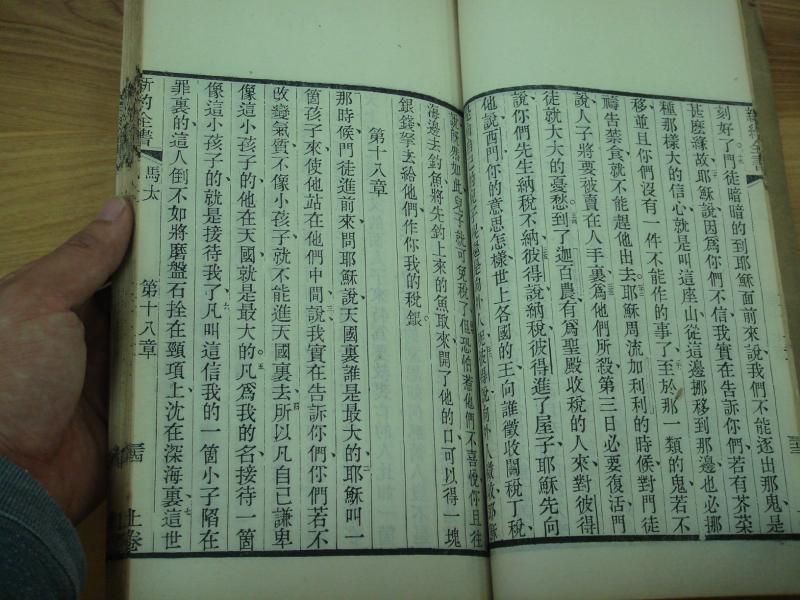 刻好了門徒暗暗的到耶穌面前來說我們不能逐出那鬼是
甚麽緣故耶穌說因爲你們不信我實在告訴你們若有芥菜
種那樣大的信心就是叫這座山從這邊挪移到那邊也必挪
移並且你們沒有一件不能作的事了至於那一類的鬼若不
禱告禁食就不能趕他出去耶穌周流加利利的時候對門徒
說人子將要被賣在人手裏爲他們所殺第三日必要復活門
徒就大大的憂愁到了迦百農有爲聖殿收稅的人來對彼得
說你們先生納稅不納彼得說納稅彼得進了屋子耶穌先向
他說西門你的意思怎樣世上各國的王向誰徵收關稅丁稅
旣然如此兒子就可免稅了但恐怕惹他們不喜悅你且往
海邊去釣魚將先釣上來的魚取來開了他的口可以得一塊
銀錢拏去給他們作你我的稅銀
第十八章
那時候門徒進前來問耶穌說天國裏誰是最大的耶穌叫一
箇孩子來使他站在他們中間說我實在告訴你們你們若不
改變氣質不像小孩子就不能進天國裏去所以凡自己謙卑
像這小孩子的他在天國就是最大的凡爲我的名接待一箇
像這小孩子的就是接待我了凡叫這信我的一箇小子陷在
罪裏的這人倒不如將磨盤石拴在頸項上沈在深海裏這世
新約全書
馬太
第十八章
上卷